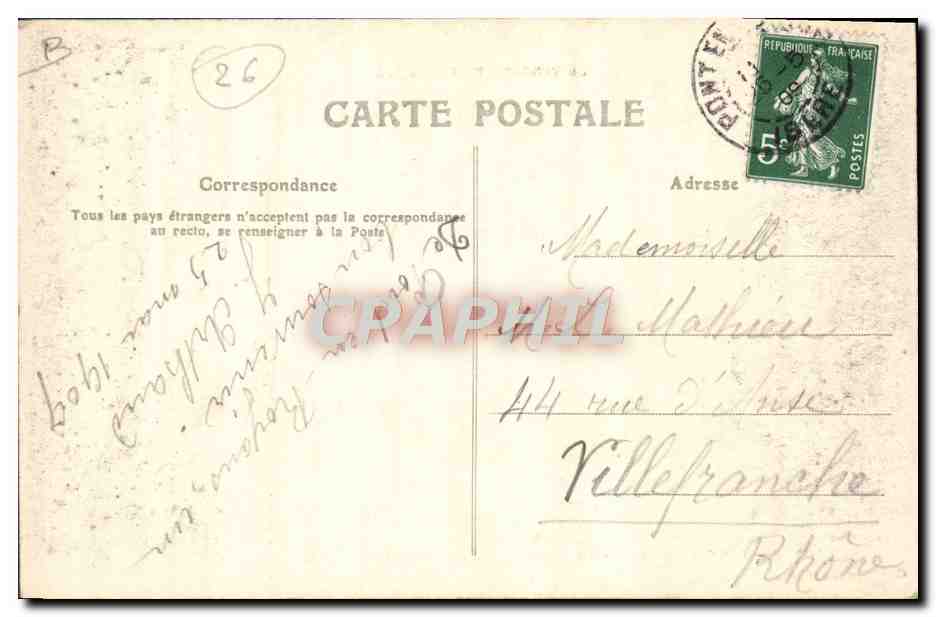 B
26
CARTE POSTALE
Correspondance
Tous les pays étrangers n'acceptent pas la correspondance
au recto, se renseigner à la Poste
De Pont en
Royans, un
bon souvenir
25 mai 1909
Adresse
REPUBLIQUE FRANÇAISE
5c
POSTES
PONT EN
ISERE
Mademoiselle
Mathieu
44 rue d'Anse
Villefranche
Rhône
CPARPHIL